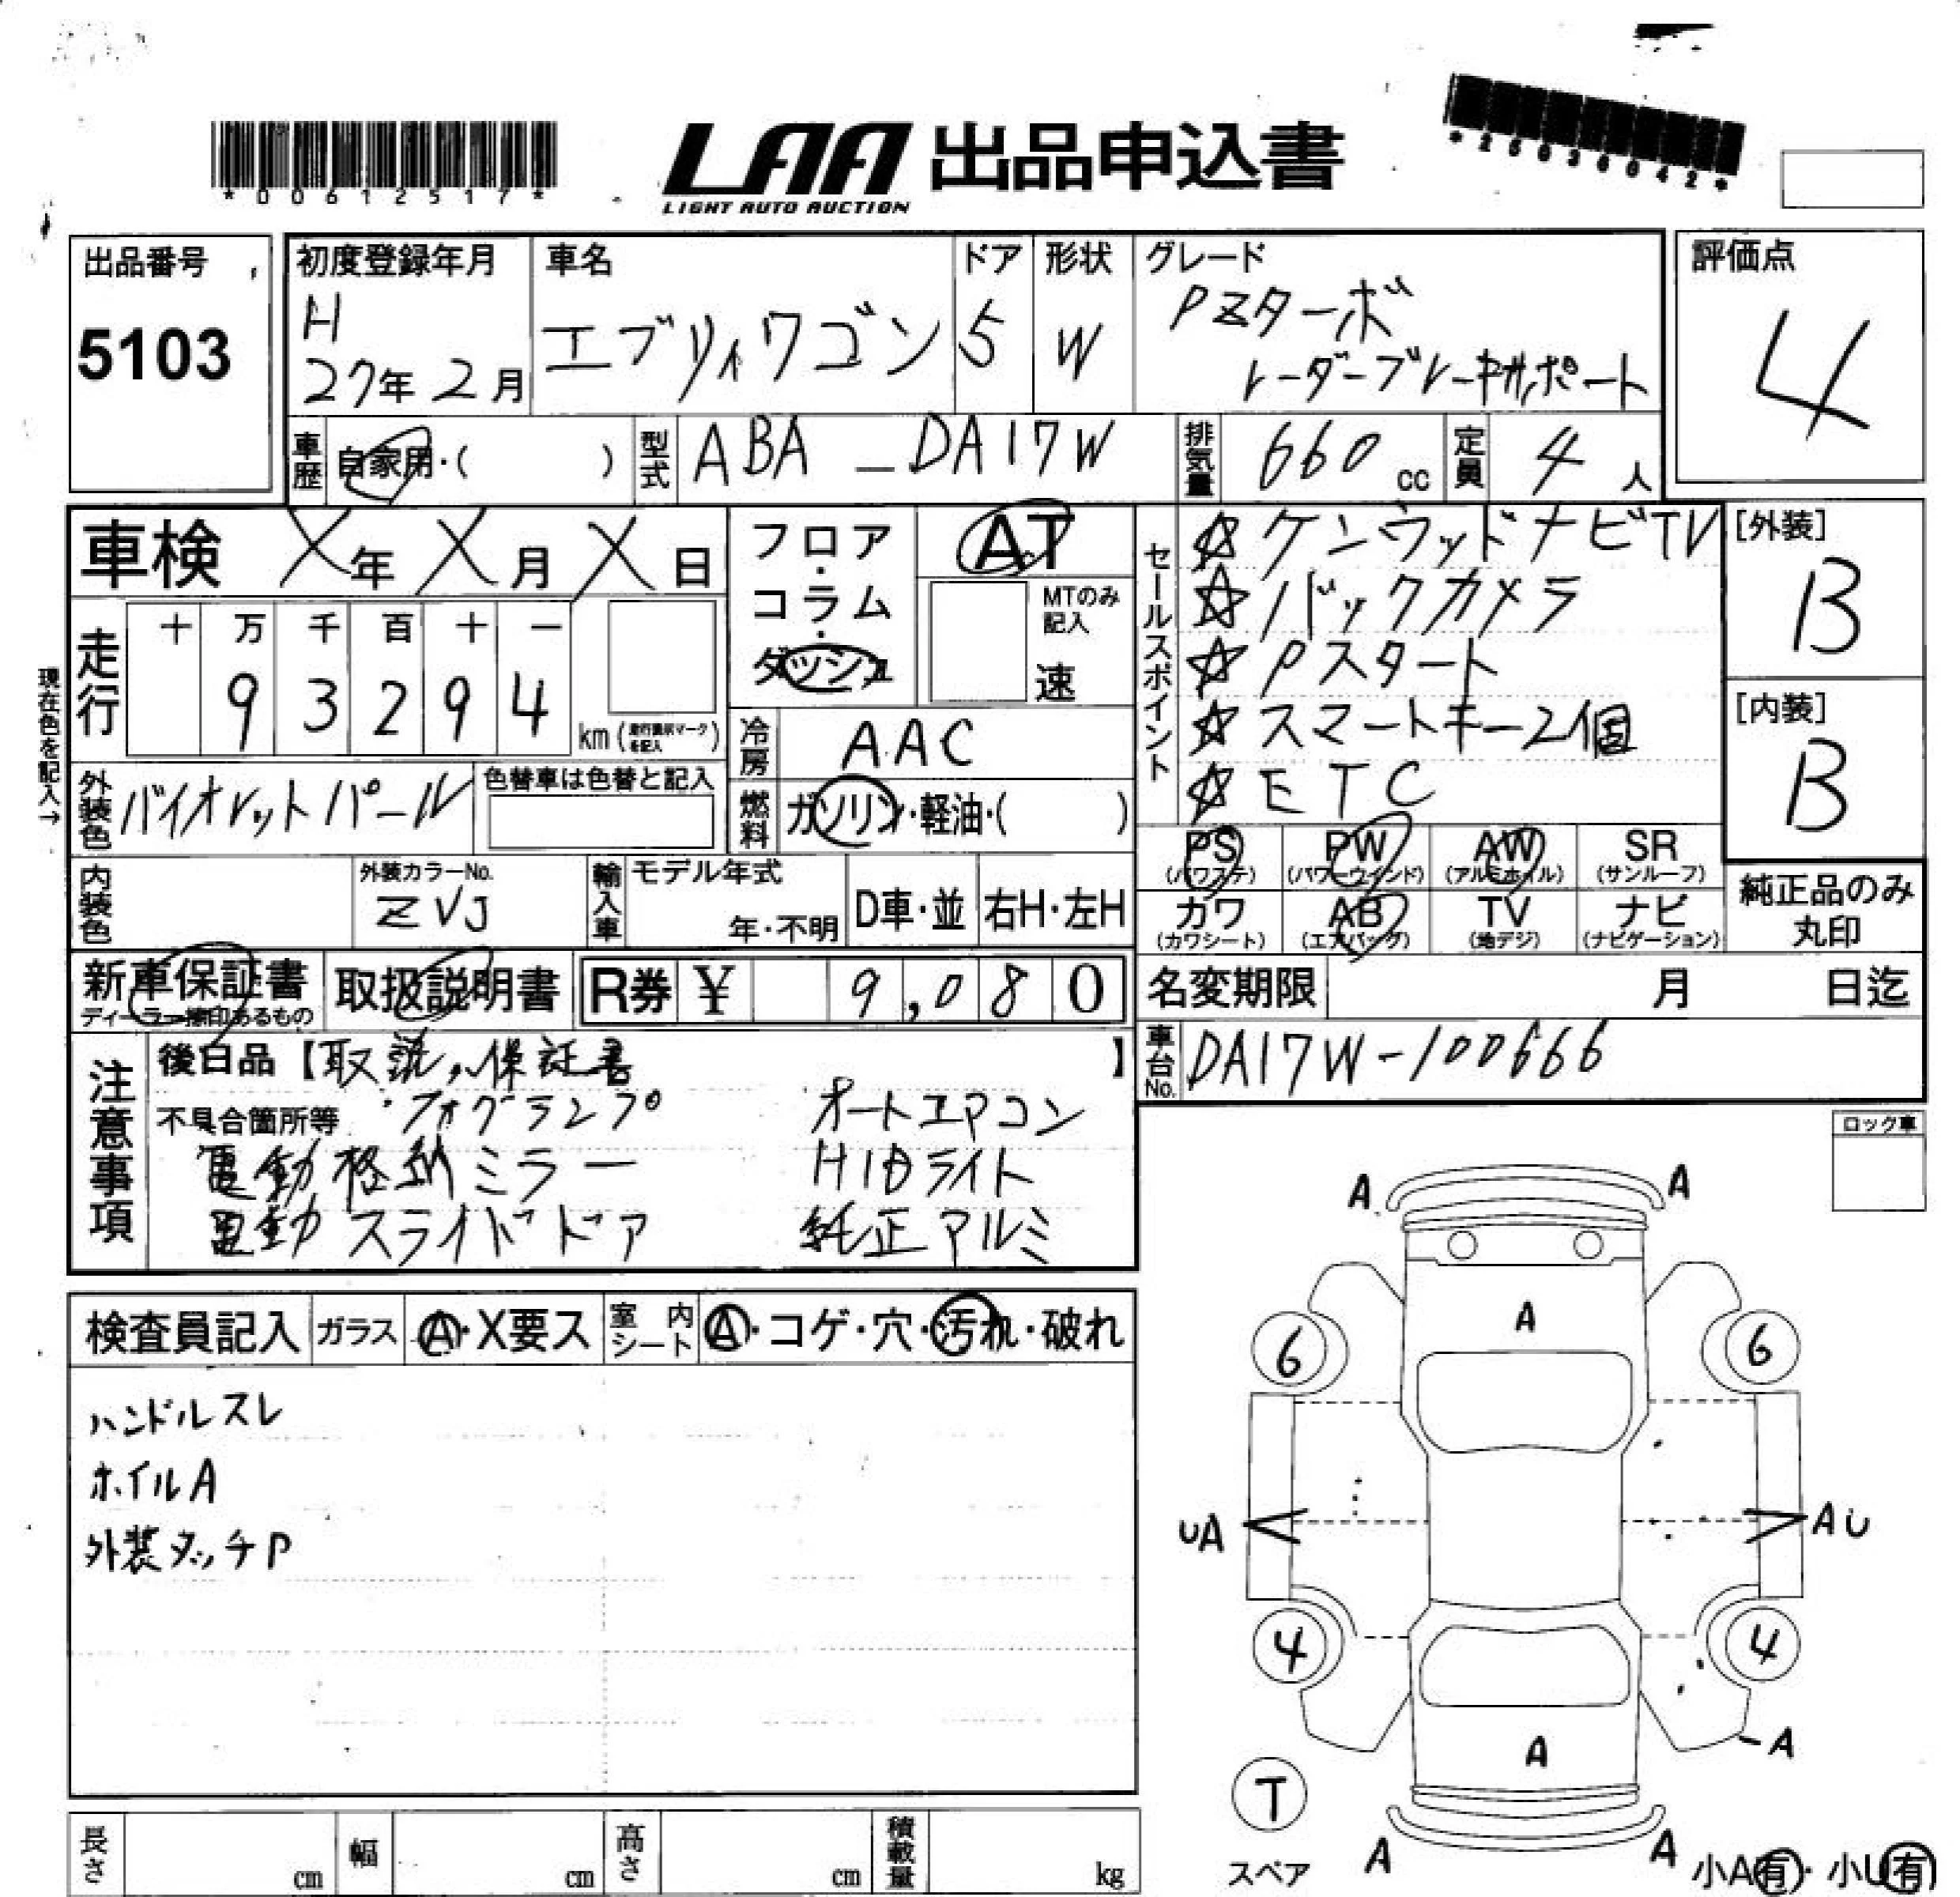 *00612517*
LAA 出品申込書
LIGHT AUTO AUCTION
*25036042*
出品番号
5103
初度登録年月
H
27年 2月
車名
エブリィワゴン
ドア
5
形状
W
グレード
PZターボ
レーダーブレーキサポート
評価点
4
車歴
自家用・( )
型式
ABA - DA17W
排気量
660 cc
定員
4 人
車検 X年 X月 X日
フロア・コラム・ダッシュ
AT
MTのみ記入
速
セールスポイント
☆ケンウッドナビTV
☆バックカメラ
☆Pスタート
☆スマートキー2個
☆ETC
[外装]
B
[内装]
B
現在色を記入→
走行
十 万 千 百 十 一
9 3 2 9 4
km
冷房
AAC
外装色
バイオレットパール
色替車は色替と記入
燃料
ガソリン・軽油・( )
PS (パワステ)
PW (パワーウィンド)
AW (アルミホイル)
SR (サンルーフ)
カワ (カワシート)
AB (エアバッグ)
TV (地デジ)
ナビ (ナビゲーション)
純正品のみ
丸印
内装色
外装カラーNo.
ZVJ
輸入車
モデル年式
年・不明
D車・並
右H・左H
新車保証書
ディーラー捺印あるもの
取扱説明書
R券 ¥ 9,080
名変期限 月 日迄
車台No.
DA17W-100666
注意事項
後日品【取説、保証書】
不具合箇所等 フォグランプ オートエアコン
電動格納ミラー HIDライト
電動スライドドア 純正アルミ
ロック車
検査員記入 ガラス A・X要ス 室内シート A・コゲ・穴・汚れ・破れ
ハンドルスレ
ホイルA
外装タッチP
A A
A
6 6
UA AU
4 4
A
A
T
スペア
A A
小A有・小U有
長さ cm 幅 cm 高さ cm 積載量 kg